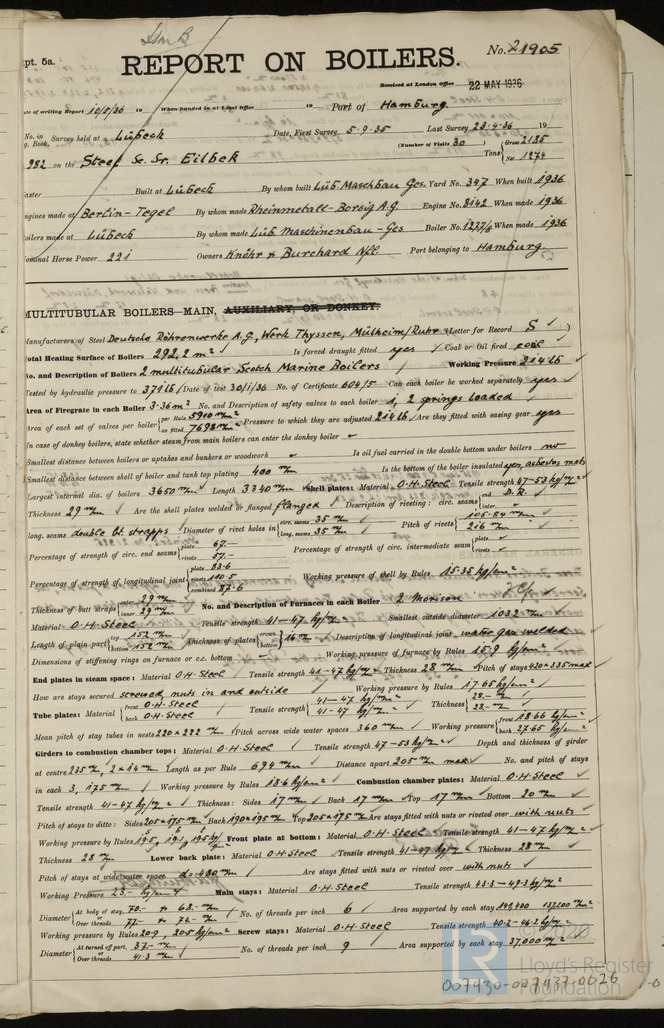 pt. 5a.
REPORT ON BOILERS.
No. 21905
Received at London Office 22 MAY 1936
te of writing Report 10/5/36 to When handed in at Local Office to Port of Hamburg.
No. in Survey held at Lübeck Date, First Survey 5-9-35 Last Survey 23-4-36 19
g. Book. (Number of Visits 30
982 on the Steel Sc. Sr. Eilbek Tons { Gross 2185 Net 1274
aster Built at Lübeck By whom built Lüb. Maschbau Ges. Yard No. 347 When built 1936
ngines made at Berlin-Tegel By whom made Rheinmetall-Borsig A.G. Engine No. 8142 When made 1936
oilers made at Lübeck By whom made Lüb. Maschinenbau-Ges Boiler No. When made 1936
ominal Horse Power 221 Owners Knöhr & Burchard Nfl. Port belonging to Hamburg
MULTITUBULAR BOILERS—MAIN, AUXILIARY, OR DONKEY.
anufacturers of Steel Deutsche Röhrenwerke A.G, Werk Thyssen, Mülheim/Ruhr (Letter for Record S )
otal Heating Surface of Boilers 292,2 m² Is forced draught fitted yes Coal or Oil fired coal
No. and Description of Boilers 2 multitubular Scotch Marine Boilers Working Pressure 214 lb
Tested by hydraulic pressure to 371 lb Date of test 30/1/36 No. of Certificate 604/5 Can each boiler be worked separately yes
Area of Firegrate in each Boiler 3.36 m² No. and Description of safety valves to each boiler 1, 2 springs loaded
Area of each set of valves per boiler { per Rule 5900 m/m² as fitted 7698 m/m² Pressure to which they are adjusted 214 lb Are they fitted with easing gear yes
In case of donkey boilers, state whether steam from main boilers can enter the donkey boiler -
Smallest distance between boilers or uptakes and bunkers or woodwork - Is oil fuel carried in the double bottom under boilers no
Smallest distance between shell of boiler and tank top plating 400 m/m Is the bottom of the boiler insulated yes, asbestos mats
Largest internal dia. of boilers 3650 m/m Length 3340 m/m Shell plates: Material O.H. Steel Tensile strength 47-53 kg/m²
Thickness 29 m/m Are the shell plates welded or flanged flanged Description of riveting: circ. seams { end D.R. inter. -
long. seams double bt. strapps Diameter of rivet holes in { circ. seams 35 m/m long. seams 35 m/m Pitch of rivets {
Percentage of strength of circ. end seams { plate 67.- rivets 57.- Percentage of strength of circ. intermediate seam { plate rivets
Percentage of strength of longitudinal joint { plate 83.6 rivets 110.5 combined 87.6 Working pressure of shell by Rules 15.35 kg/cm²
Thickness of butt straps { outer 29 m/m inner 29 m/m No. and Description of Furnaces in each Boiler 2 Morison
Material O.H. Steel Tensile strength 41-47 kg/m² Smallest outside diameter 1032 m/m
Length of plain part { top 152 m/m bottom 152 m/m Thickness of plates { crown bottom 16 m/m Description of longitudinal joint water gas welded
Dimensions of stiffening rings on furnace or c.c. bottom Working pressure of furnace by Rules 15.9 kg/cm²
End plates in steam space: Material O.H. Steel Tensile strength 41-47 kg/m² Thickness 28 m/m Pitch of stays 420 × 335 max
How are stays secured screwed, nuts in and outside Working pressure by Rules 17.65 kg/cm²
Tube plates: Material { front O.H. Steel back O.H. Steel Tensile strength { 41-47 kg/m² 41-47 kg/m² Thickness { 28.- m/m 28.- m/m
Mean pitch of stay tubes in nests 220 × 222 m/m Pitch across wide water spaces 360 m/m Working pressure { front 18.66 kg/cm² back 27.65 kg/cm²
Girders to combustion chamber tops: Material O.H. Steel Tensile strength 47-53 kg/m² Depth and thickness of girder
at centre 235 m/m, 2×14 m/m Length as per Rule 694 m/m Distance apart 205 m/m max No. and pitch of stays
in each 3, 175 m/m Working pressure by Rules 18.6 kg/cm² Combustion chamber plates: Material O.H. Steel
Tensile strength 41-47 kg/m² Thickness: Sides 17 m/m Back 17 m/m Top 17 m/m Bottom 20 m/m
Pitch of stays to ditto: Sides 205×175 m/m Back 190×195 m/m Top 205×175 m/m Are stays fitted with nuts or riveted over with nuts
Working pressure by Rules Front plate at bottom: Material O.H. Steel Tensile strength 41-47 kg/m²
Thickness 28 m/m Lower back plate: Material O.H. Steel Tensile strength 41-47 kg/m² Thickness 28 m/m
Pitch of stays at wide water space d=480 m/m Are stays fitted with nuts or riveted over with nuts
Working Pressure 23.- kg/cm² Main stays: Material O.H. Steel Tensile strength 43.3-49.3 kg/m²
Diameter { At body of stay, 70.- & 68.- m/m or Over threads 77.- & 74.- m/m No. of threads per inch 6 Area supported by each stay
Working pressure by Rules 20.9, 20.5 kg/cm² Screw stays: Material O.H. Steel Tensile strength 40.2-46.2 kg/m²
Diameter { At turned off part, 37.- m/m or Over threads 41.3 m/m No. of threads per inch 9 Area supported by each stay 37,000 m/m²
© 2020
LR
Lloyd's Register
Foundation
007430-007437-0026